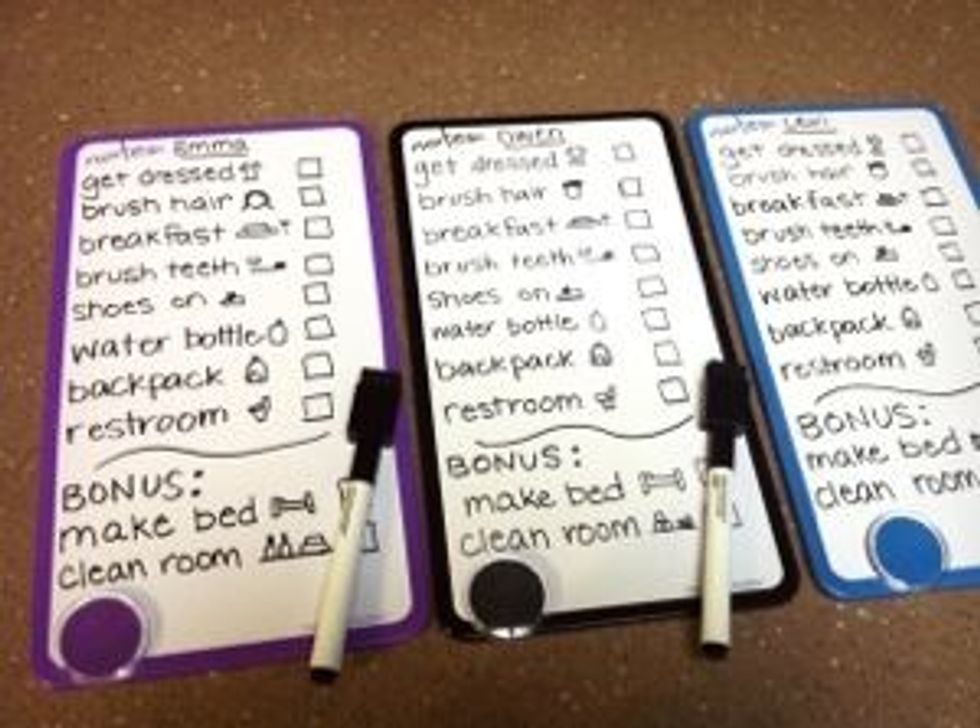 notes: Emma
get dressed
brush hair
breakfast
brush teeth
shoes on
water bottle
backpack
restroom
BONUS:
make bed
clean room
notes: Owen
get dressed
brush hair
breakfast
brush teeth
shoes on
water bottle
backpack
restroom
BONUS:
make bed
clean room
notes:
get dressed
brush hair
breakfast
brush teeth
shoes on
water bottle
backpack
restroom
BONUS:
make bed
clean room